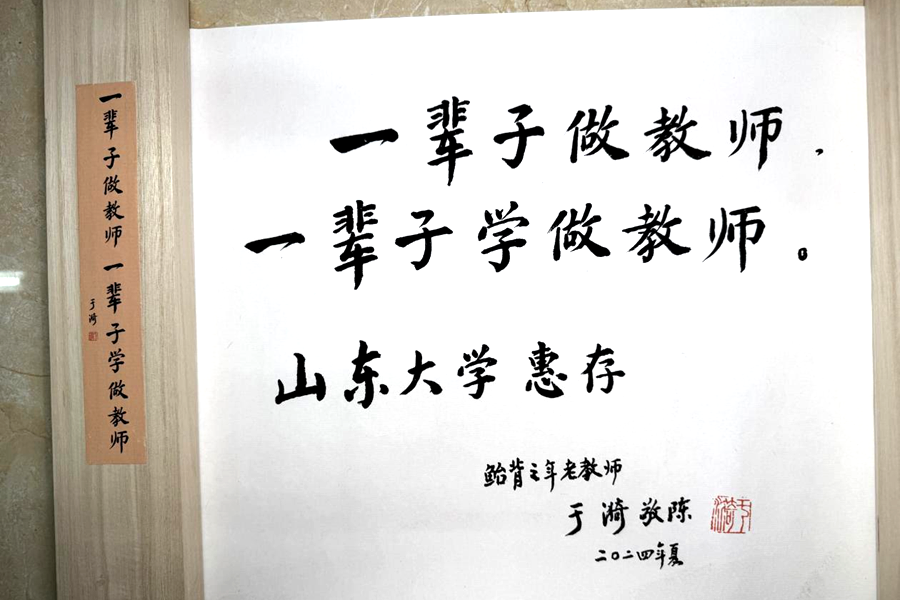 一辈子做教师 一辈子学做教师
于漪
一辈子做教师，
一辈子学做教师。
山东大学 惠存
鲐背之年老教师
于漪 敬陈
于漪
二〇二四年夏